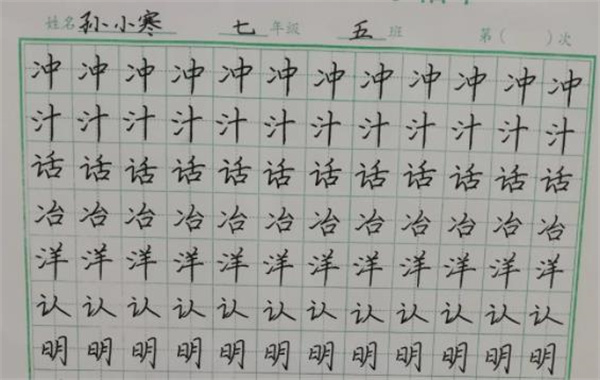 姓名 孙小寒 七 年级 五 班 第( )次
冲冲冲冲冲冲冲冲冲冲冲冲
汁汁汁汁汁汁汁汁汁汁汁汁
话话话话话话话话话话话话
冶冶冶冶冶冶冶冶冶冶冶冶
洋洋洋洋洋洋洋洋洋洋洋洋
认认认认认认认认认认认认
明明明明明明明明明明明明